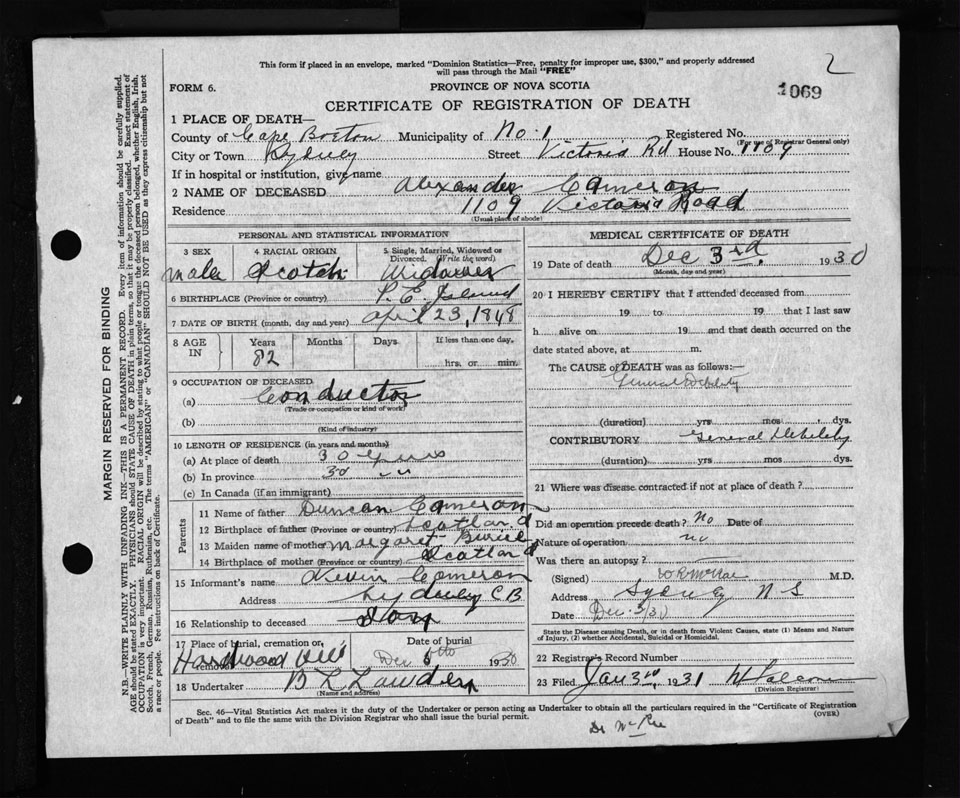 This form if placed in an envelope, marked "Dominion Statistics—Free, penalty for improper use, $300," and properly addressed
will pass through the Mail "FREE"
2
FORM 6.
PROVINCE OF NOVA SCOTIA
1069
CERTIFICATE OF REGISTRATION OF DEATH
1 PLACE OF DEATH—
County of Cape Breton Municipality of No. 1 Registered No.
(For use of Registrar General only)
City or Town Sydney Street Victoria Rd House No. 1109
If in hospital or institution, give name
2 NAME OF DECEASED Alexander Cameron
Residence 1109 Victoria Road
(Usual place of abode)
PERSONAL AND STATISTICAL INFORMATION
3 SEX 4 RACIAL ORIGIN 5 Single, Married, Widowed or Divorced. (Write the word)
male Scotch Widower
6 BIRTHPLACE (Province or country) P. E. Island
7 DATE OF BIRTH (month, day and year) April 23, 1848
8 AGE IN Years Months Days If less than one day,
82 hrs. or min.
9 OCCUPATION OF DECEASED
(a) Conductor
(Trade or occupation or kind of work)
(b)
(Kind of industry)
10 LENGTH OF RESIDENCE (in years and months)
(a) At place of death 30 Years
(b) In province 30 " "
(c) In Canada (if an immigrant)
Parents
11 Name of father Duncan Cameron
12 Birthplace of father (Province or country) Scotland
13 Maiden name of mother Margaret
14 Birthplace of mother (Province or country) Scotland
15 Informant's name Kevin Cameron
Address Sydney C B
16 Relationship to deceased Son
17 Place of burial, cremation or removal Date of burial
Hardwood Hill Dec 5th 1930
18 Undertaker B L
(Name and address)
MEDICAL CERTIFICATE OF DEATH
19 Date of death Dec 3rd. 1930
(Month, day and year)
20 I HEREBY CERTIFY that I attended deceased from
19 to 19 that I last saw
h alive on 19 and that death occurred on
date stated above, at m.
The CAUSE of DEATH was as follows:—
General Debility
(duration) yrs mos. dys.
CONTRIBUTORY General Debility
(duration) yrs mos dys.
21 Where was disease contracted if not at place of death?
Did an operation precede death? No Date of
Nature of operation no
Was there an autopsy?
(Signed) McRae M.D.
Address Sydney N S
Date Dec. 3/30
State the Disease causing Death, or in death from Violent Causes, state (1) Means and
Nature of Injury, (2) whether Accidental, Suicidal or Homicidal.
22 Registrar's Record Number
23 Filed Jan 3rd 1931
(Division Registrar)
Sec. 46—Vital Statistics Act makes it the duty of the Undertaker or person acting as Undertaker to obtain all the particulars required in the "Certificate of Registration
of Death" and to file the same with the Division Registrar who shall issue the burial permit.
(OVER)
Dr McRae
MARGIN RESERVED FOR BINDING
N.B.—WRITE PLAINLY WITH UNFADING INK—THIS IS A PERMANENT RECORD. Every item of information should be carefully supplied.
AGE should be stated EXACTLY. PHYSICIANS should STATE CAUSE OF DEATH in plain terms, so that it may be properly classified. Exact statement of
OCCUPATION is very important. RACIAL ORIGIN will be described by stating to what people or tongue the deceased person belonged, whether English, Irish,
Scotch, French, German, Russian, Ruthenian, etc. The terms "AMERICAN" or "CANADIAN" SHOULD NOT BE USED as they express citizenship but not
a race or people. See instructions on back of Certificate.